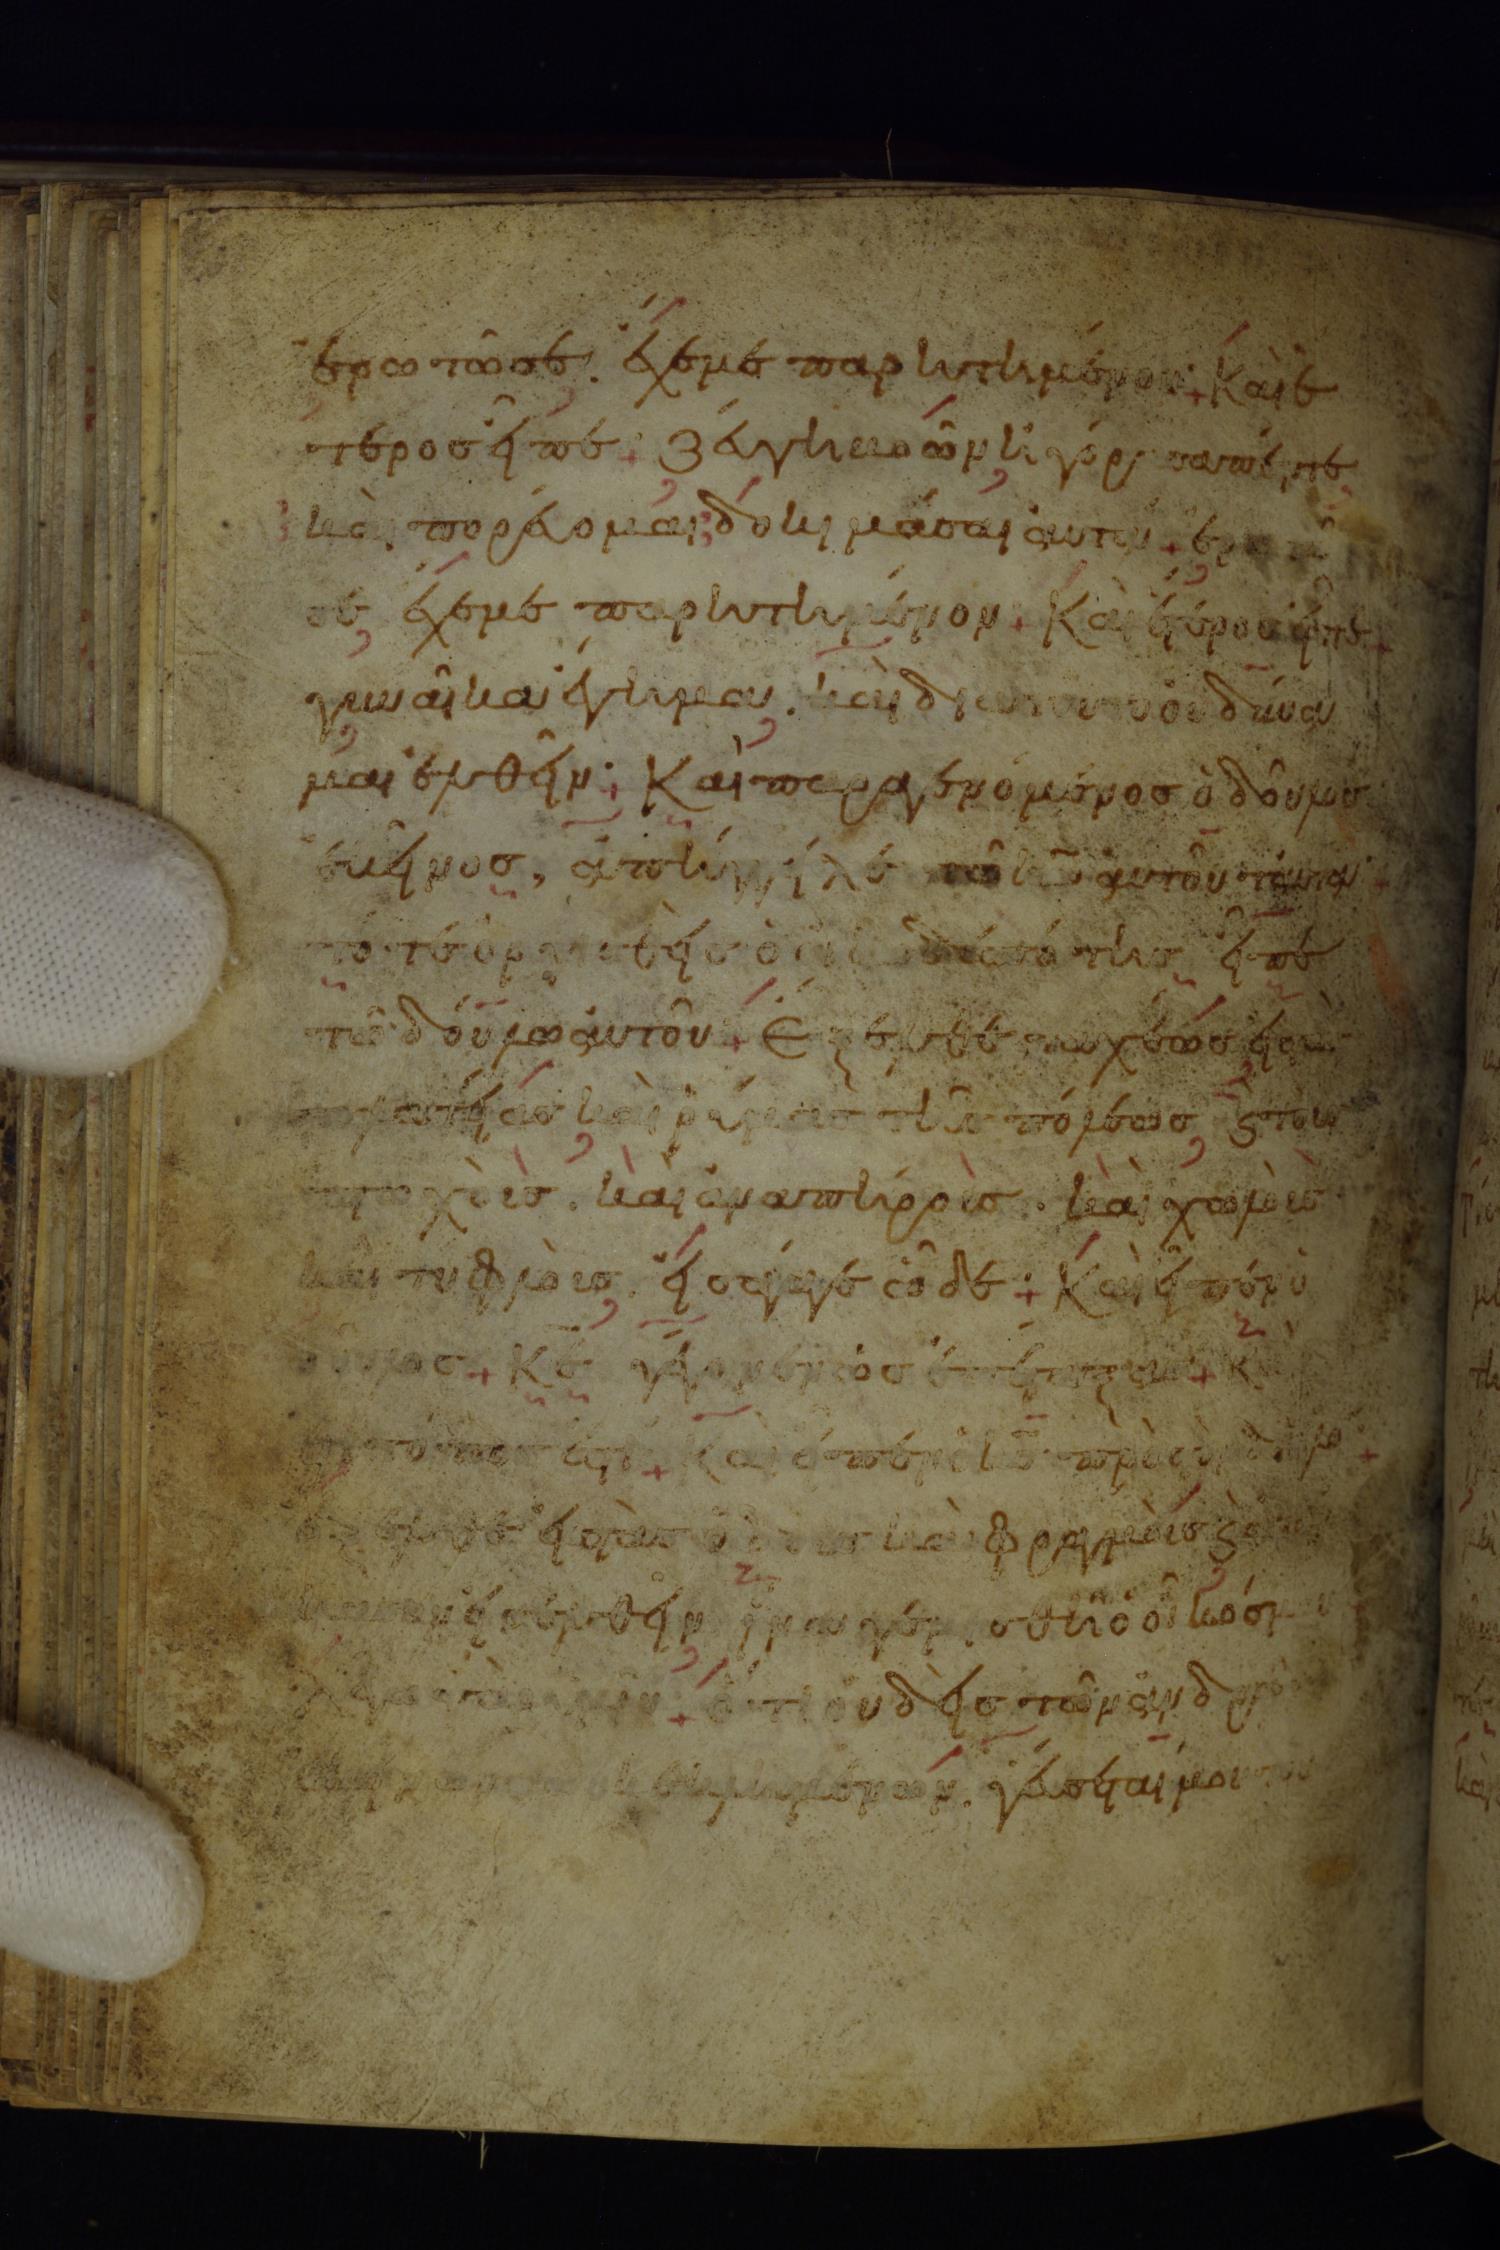 ἐρωτῶ σε. ἔχε με παρητημένον + Καὶ ἕ
τερος εἶπε + ζεύγη βοῶν ἠγόρασα πέντε
καὶ πορεύομαι δοκιμάσαι αὐτά + ἐρωτῶ
σε ἔχε με παρητημένον + Καὶ ἕτερος εἶπε +
γυναῖκα ἔγημα. καὶ διὰ τοῦτο οὐ δύνα
μαι ἐλθεῖν + Καὶ παραγενόμενος ὁ δοῦλος
ἐκεῖνος, ἀπήγγειλε τῷ κῶ αὐτοῦ ταῦτα +
τότε ὀργισθεὶς ὁ οἰκοδεσπότης εἶπε
τῷ δούλω αὐτοῦ + Ἔξελθε ταχέως εἰς τὰς
πλατείας καὶ ῥύμας τῆς πόλεως, ϗ τοὺς
πτωχοὺς. καὶ ἀναπήρους. καὶ χωλοὺς
καὶ τυφλοὺς. εἰσάγαγε ὧδε + Καὶ εἶπεν ὁ
δοῦλος + Κε γέγονεν ὡς ἐπέταξας + κ
ἔτι τόπος ἐστί + Καὶ εἶπεν ὁ κς πρὸς τὸν δοῦλον +
ἔξελθε εἰς τὰς ὁδοὺς καὶ φραγμοὺς ϗ
εἰσελθεῖν ἵνα γεμισθῆ ὁ οἶκός μου
λέγω γὰρ ὑμῖν + ὅτι οὐδεὶς τῶν ἀνδρῶν
ἐκείνων τῶν κεκλημένων. γεύσεταί μου τοῦ